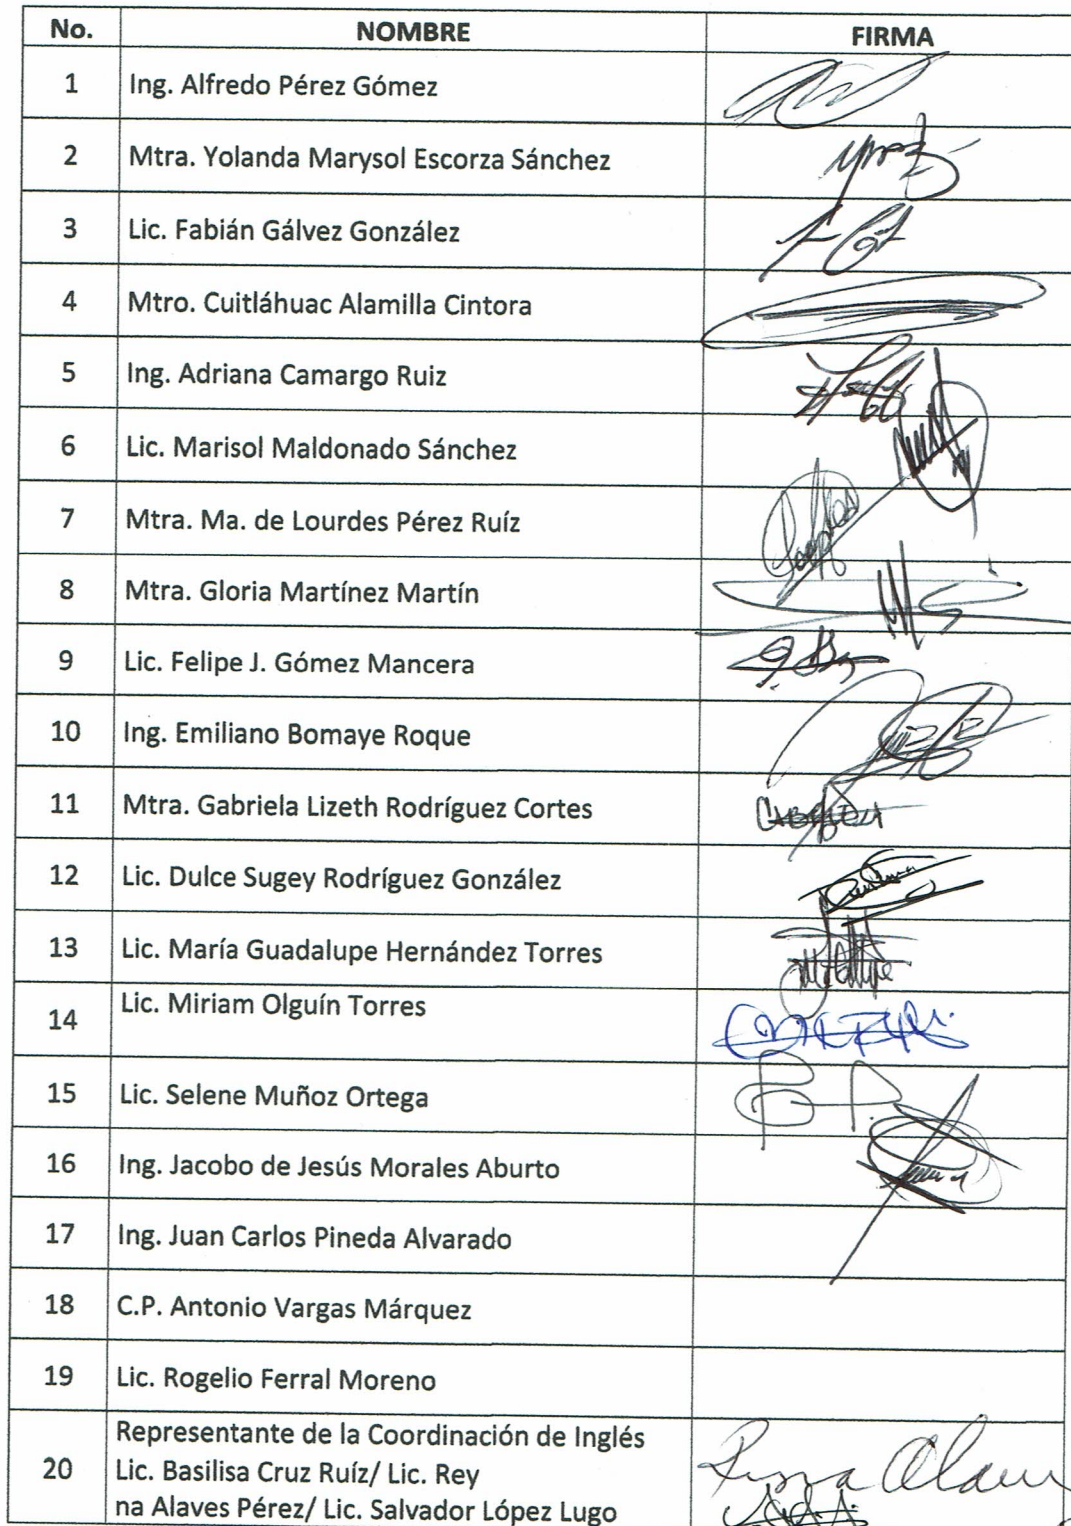 No. NOMBRE FIRMA
1 Ing. Alfredo Pérez Gómez
2 Mtra. Yolanda Marysol Escorza Sánchez
3 Lic. Fabián Gálvez González
4 Mtro. Cuitláhuac Alamilla Cintora
5 Ing. Adriana Camargo Ruiz
6 Lic. Marisol Maldonado Sánchez
7 Mtra. Ma. de Lourdes Pérez Ruíz
8 Mtra. Gloria Martínez Martín
9 Lic. Felipe J. Gómez Mancera
10 Ing. Emiliano Bomaye Roque
11 Mtra. Gabriela Lizeth Rodríguez Cortes
12 Lic. Dulce Sugey Rodríguez González
13 Lic. María Guadalupe Hernández Torres
14 Lic. Miriam Olguín Torres
15 Lic. Selene Muñoz Ortega
16 Ing. Jacobo de Jesús Morales Aburto
17 Ing. Juan Carlos Pineda Alvarado
18 C.P. Antonio Vargas Márquez
19 Lic. Rogelio Ferral Moreno
Representante de la Coordinación de Inglés
20 Lic. Basilisa Cruz Ruíz/ Lic. Rey
na Alaves Pérez/ Lic. Salvador López Lugo